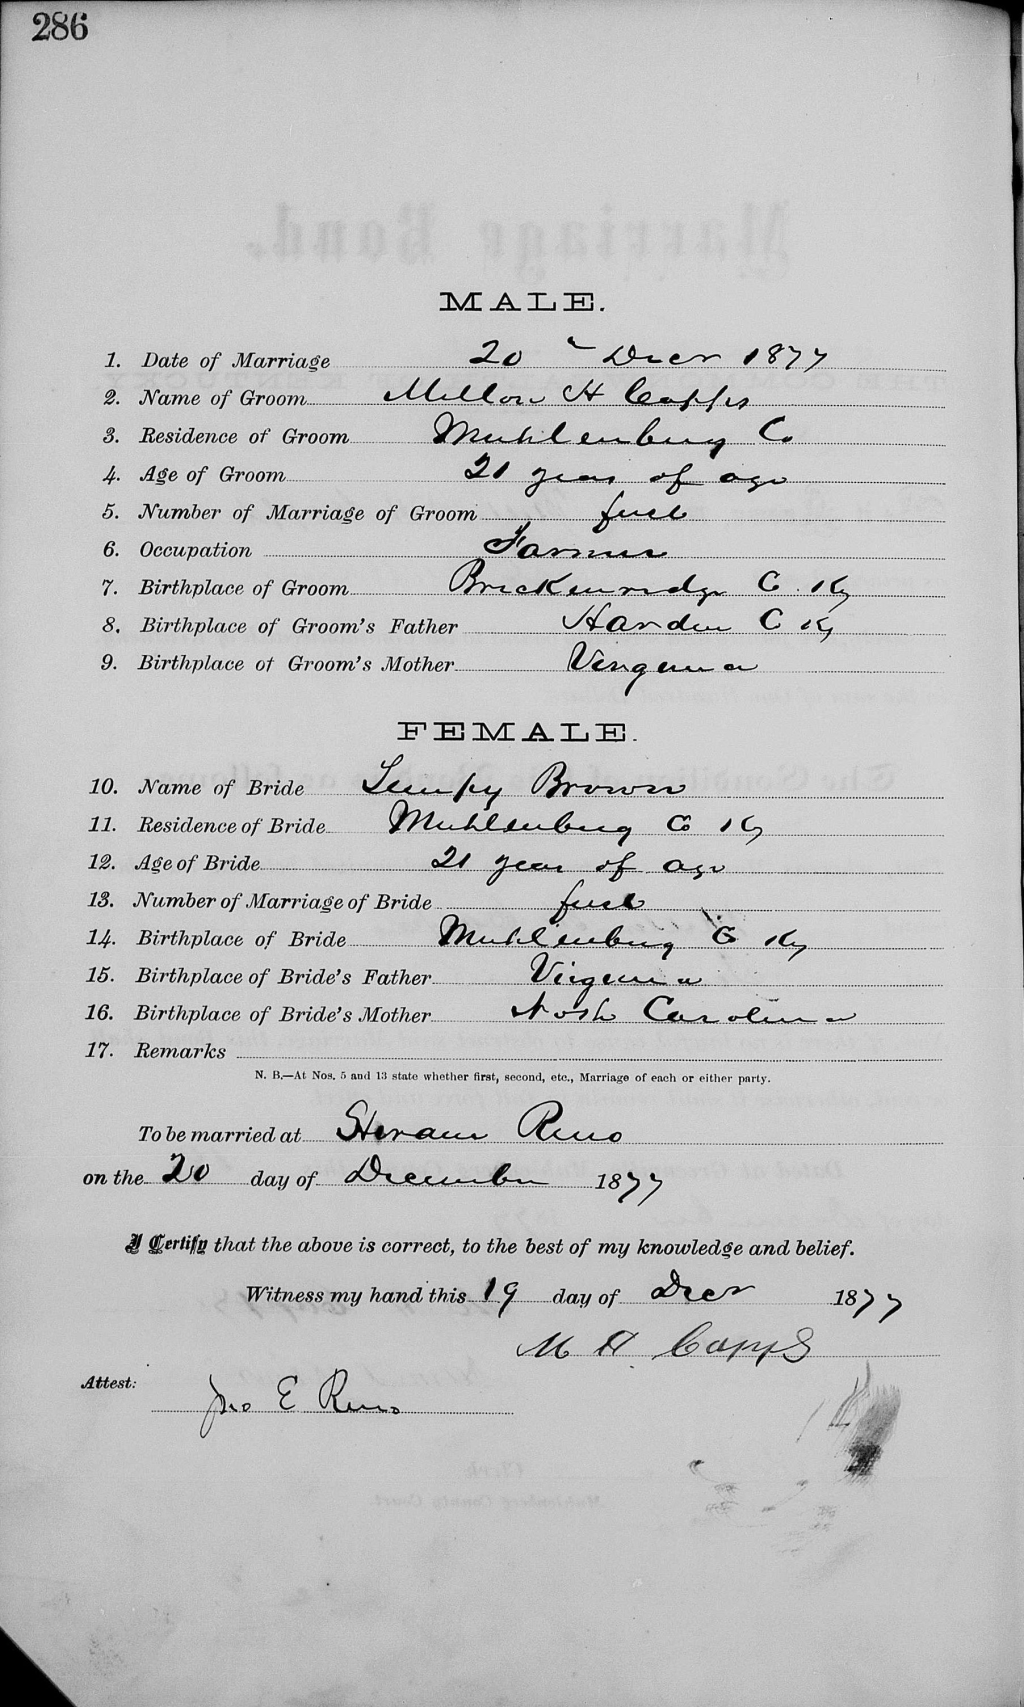 286
MALE.
1. Date of Marriage 20 Decr 1877
2. Name of Groom H Capps
3. Residence of Groom Muhlenburg Co
4. Age of Groom 21 years of age
5. Number of Marriage of Groom first
6. Occupation Farmer
7. Birthplace of Groom Breckenridge C. Ky
8. Birthplace of Groom's Father Harden C Ky
9. Birthplace of Groom's Mother Virginia
FEMALE.
10. Name of Bride Brown
11. Residence of Bride Muhlenburg Co Ky
12. Age of Bride 21 years of age
13. Number of Marriage of Bride first
14. Birthplace of Bride Muhlenburg Co Ky
15. Birthplace of Bride's Father Virginia
16. Birthplace of Bride's Mother North Carolina
17. Remarks
N. B.—At Nos. 5 and 13 state whether first, second, etc., Marriage of each or either party.
To be married at Hiram Reno
on the 20 day of December 1877
I Certify that the above is correct, to the best of my knowledge and belief.
Witness my hand this 19 day of Decr 1877
M H Capps
Attest:
Jno E Reno